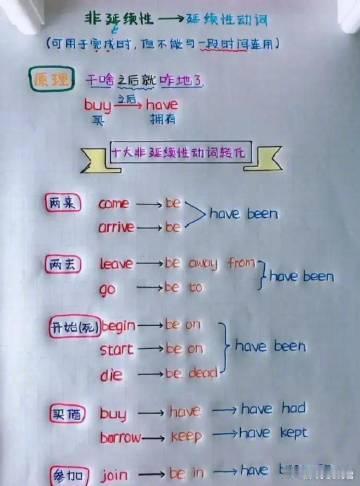 非延续性 → 延续性动词
(可用于完成时，但不能与一段时间连用)
原理 干啥之后就咋地了
buy 之后→ have
买 拥有
十大非延续性动词转化
两来 come → be
arrive → be
have been
两去 leave → be away from
go → be to
have been
开始(死) begin → be on
start → be on
die → be dead
have been
买借 buy → have → have had
borrow → keep → have kept
参加 join → be in → have